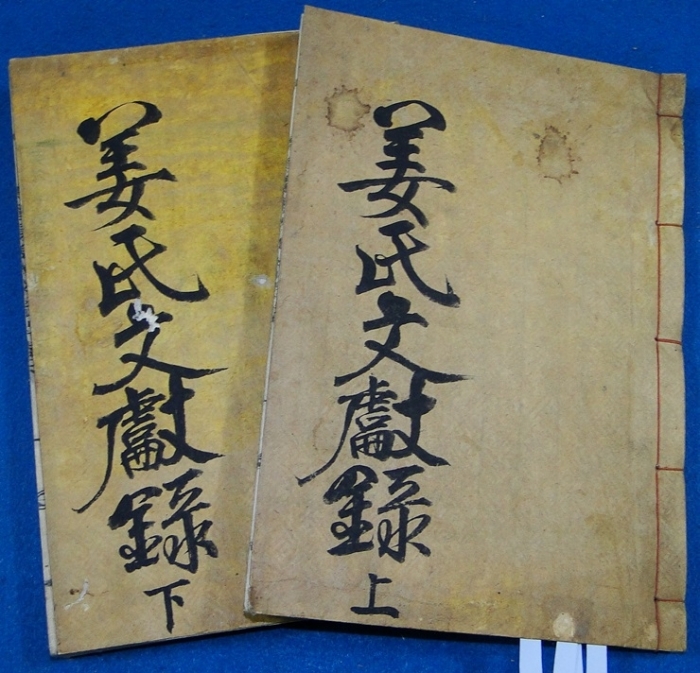 姜氏文獻錄上
姜氏文獻錄下